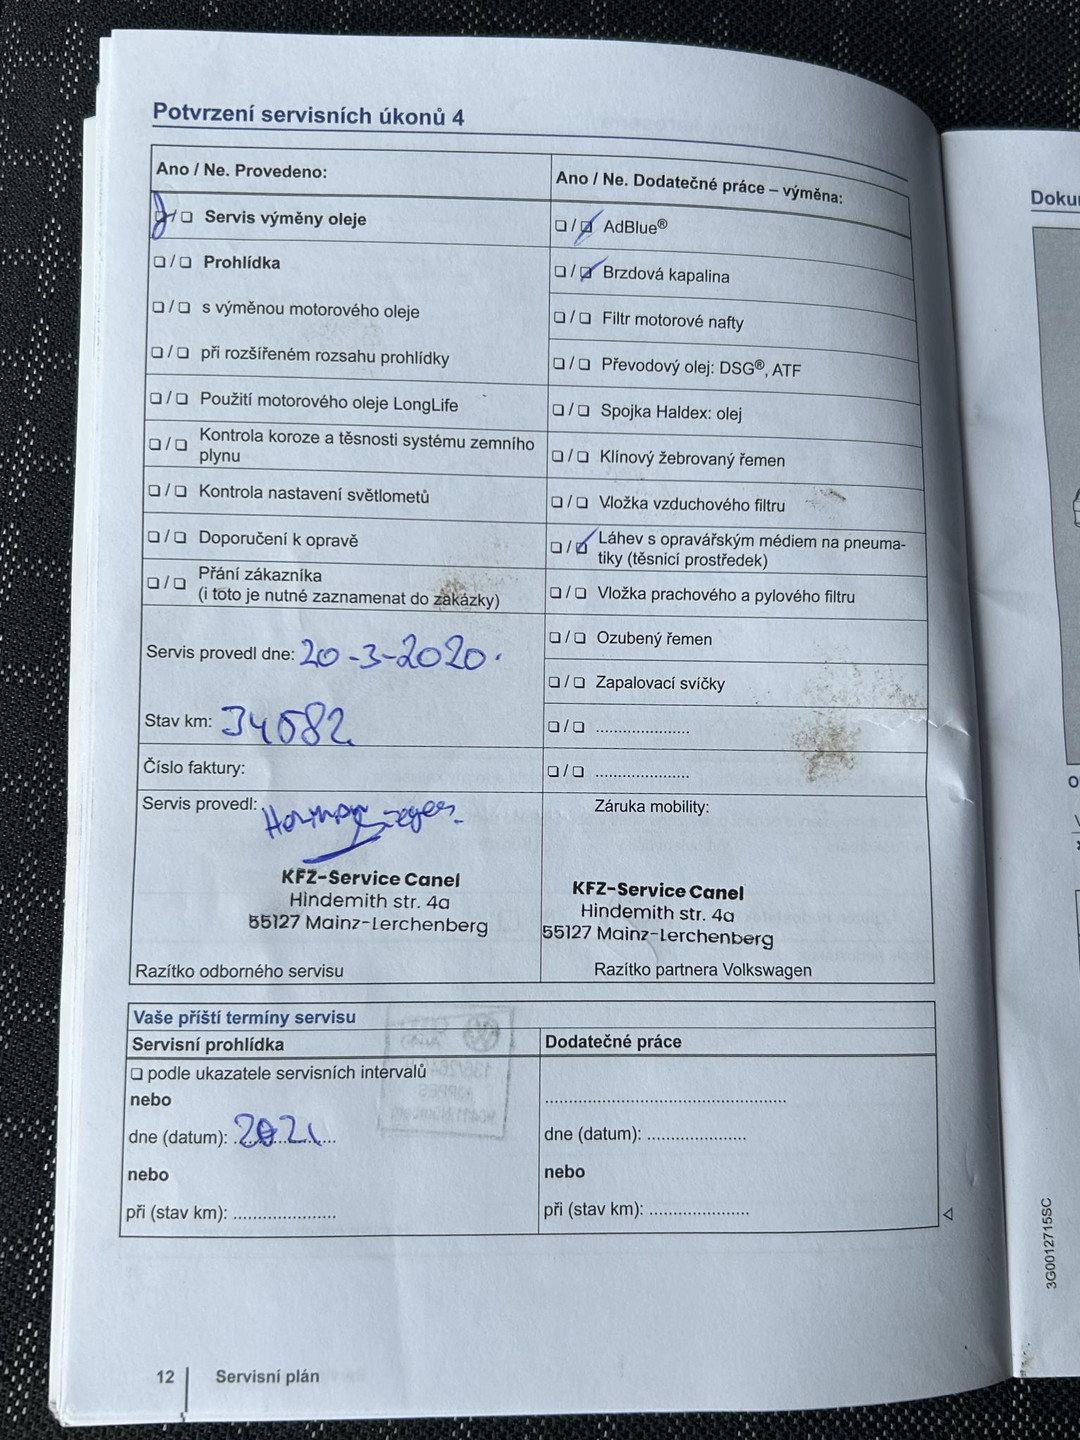 Potvrzení servisních úkonů 4
Ano / Ne. Provedeno:
❏ / ❏ Servis výměny oleje
❏ / ❏ Prohlídka
❏ / ❏ s výměnou motorového oleje
❏ / ❏ při rozšířeném rozsahu prohlídky
❏ / ❏ Použití motorového oleje LongLife
❏ / ❏ Kontrola koroze a těsnosti systému zemního
plynu
❏ / ❏ Kontrola nastavení světlometů
❏ / ❏ Doporučení k opravě
❏ / ❏ Přání zákazníka
(i toto je nutné zaznamenat do zakázky)
Servis provedl dne: 20-3-2020.
Stav km: 34582
Číslo faktury:
Servis provedl:
KFZ-Service Canel
Hindemith str. 4a
55127 Mainz-Lerchenberg
Razítko odborného servisu
Ano / Ne. Dodatečné práce – výměna:
❏ / ❏ AdBlue®
❏ / ❏ Brzdová kapalina
❏ / ❏ Filtr motorové nafty
❏ / ❏ Převodový olej: DSG®, ATF
❏ / ❏ Spojka Haldex: olej
❏ / ❏ Klínový žebrovaný řemen
❏ / ❏ Vložka vzduchového filtru
❏ / ❏ Láhev s opravářským médiem na pneuma-
tiky (těsnicí prostředek)
❏ / ❏ Vložka prachového a pylového filtru
❏ / ❏ Ozubený řemen
❏ / ❏ Zapalovací svíčky
❏ / ❏ .....................
❏ / ❏ .....................
Záruka mobility:
KFZ-Service Canel
Hindemith str. 4a
55127 Mainz-Lerchenberg
Razítko partnera Volkswagen
Vaše příští termíny servisu
Servisní prohlídka
❏ podle ukazatele servisních intervalů
nebo
dne (datum): 2021
nebo
při (stav km): .....................
Dodatečné práce
.....................................................
dne (datum): .....................
nebo
při (stav km): .....................
12 Servisní plán
Doku
3G0012715SC